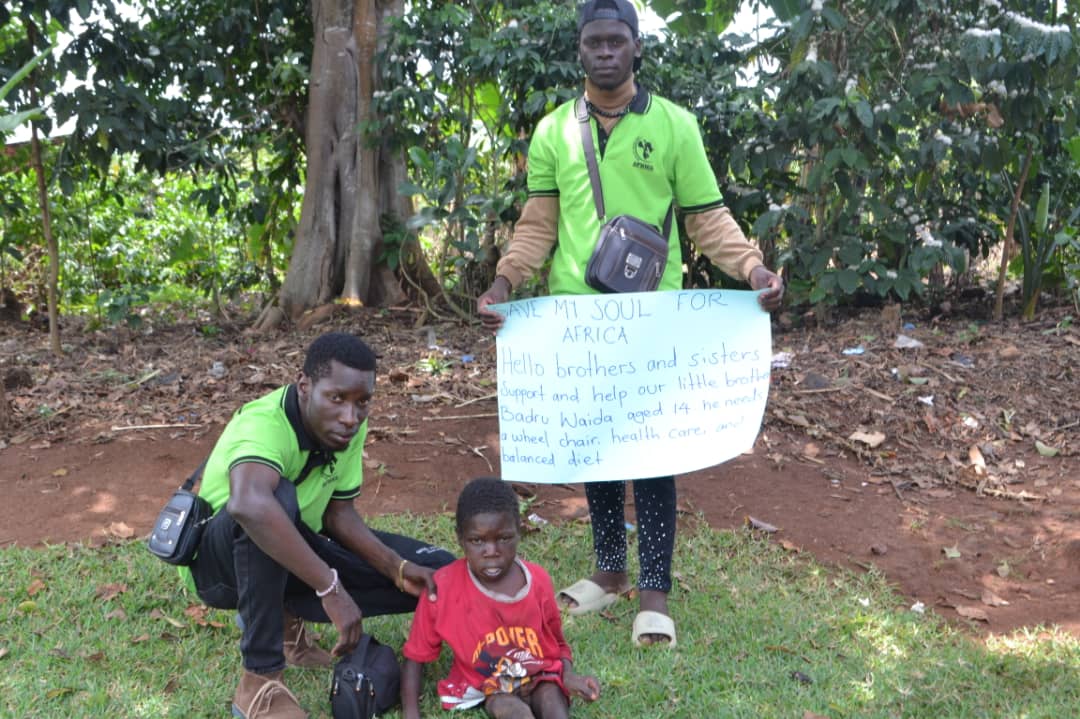 SAVE MY SOUL FOR
AFRICA
Hello brothers and sisters
Support and help our little brother
Badru Waida aged 14 he needs
a wheel chair, health care, and
balanced diet
AFRICA
POWER